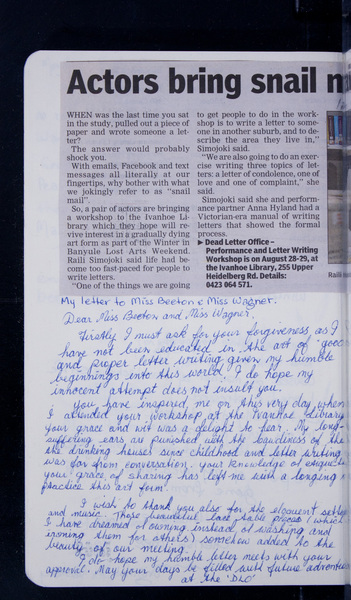 Actors bring snail m
WHEN was the last time you sat
in the study, pulled out a piece of
paper and wrote someone a let-
ter?
The answer would probably
shock you.
With emails, Facebook and text
messages all literally at our
fingertips, why bother with what
we jokingly refer to as "snail
mail".
So, a pair of actors are bringing
a workshop to the Ivanhoe Li-
brary which they hope will re-
vive interest in a gradually dying
art form as part of the Winter in
Banyule Lost Arts Weekend.
Raili Simojoki said life had be-
come too fast-paced for people to
write letters.
"One of the things we are going
to get people to do in the work-
shop is to write a letter to some-
one in another suburb, and to de-
scribe the area they live in,"
Simojoki said.
"We are also going to do an exer-
cise writing three topics of let-
ters: a letter of condolence, one of
love and one of complaint," she
said.
Simojoki said she and perform-
ance partner Anna Hyland had a
Victorian-era manual of writing
letters that showed the formal
process.
▶ Dead Letter Office –
Performance and Letter Writing
Workshop is on August 28-29, at
the Ivanhoe Library, 255 Upper
Heidelberg Rd. Details:
0423 064 571.
Raili
My letter to Miss Beeton & Miss Wagner.
Dear Miss Beeton and Miss Wagner,
Firstly I must ask for your forgiveness as I
have not been educated in the art of 'good'
and proper letter writing given my humble
beginnings into this world. I do hope my
innocent attempt does not insult you.
You have inspired me on this very day when
I attended your workshop at the Ivanhoe Library
your grace and wit was a delight to hear. My long-
suffering ears are punished with the baudiness of the
the drinking houses since childhood and letter writing
was far from conversation. Your knowledge of etiquette
your grace of sharing has left me with a longing
practice this art form.
I wish to thank you also for the eloquent setting
and music. Those beautiful lace table pieces (which
I have dreamed of owning instead of washing and
ironing them for others) somehow added to the
beauty of our meeting.
I do hope my humble letter meets with your
approval. May your days be filled with future adventures
at the 'DLO'